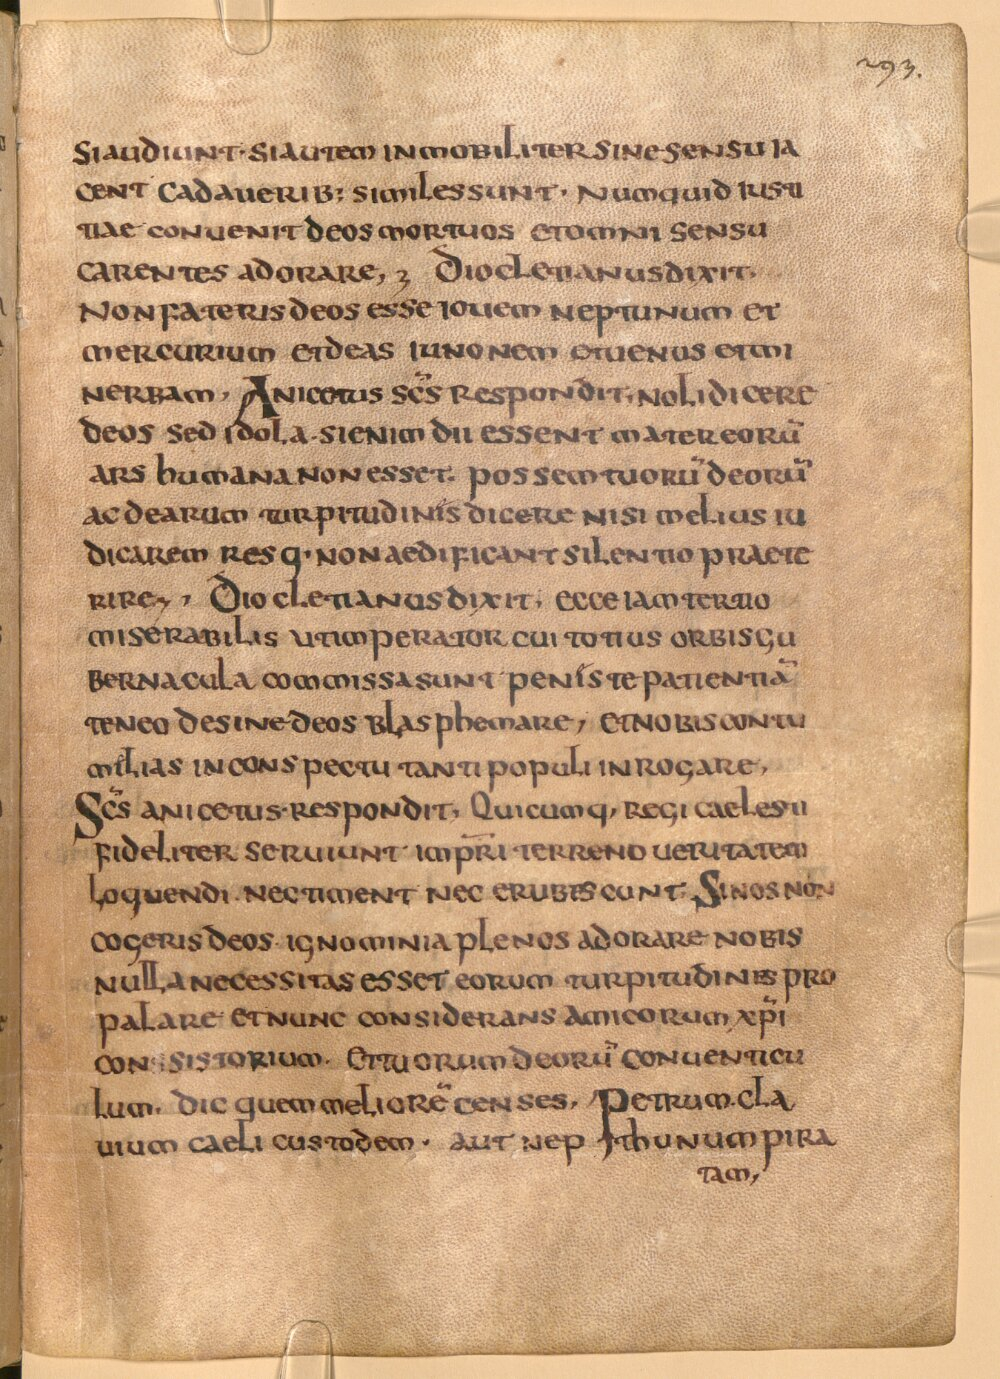 293.
si audiunt · si autem inmobiliter sine sensu ia
cent cadaverib; similes sunt · Numquid iusti
tiae convenit deos mortuos et omni sensu
carentes adorare, ʒ Diocletianus dixit.
Non fateris deos esse iovem neptunum et
mercurium et deas iunonem et venus et mi
nerbam, Anicetus scs̄ respondit, noli dicere
deos sed idola · si enim dii essent mater eorū
ars humana non esset. possem tuorū deorū
ac dearum turpitudinis dicere nisi melius iu
dicarem res q· non aedificant silentio praete
rire, Diocletianus dixit, ecce iam tertio
miserabilis ut imperator cui totius orbis gu
bernacula commissa sunt penis te patientiā
teneo desine deos blasphemare, et nobis contu
milias in conspectu tanti populi inrogare,
Scs̄ anicetus respondit, Quicumq, regi caelesti
fideliter serviunt imp̄ri terreno veritatem
loquendi nec timent nec erubescunt. Si nos non
cogeris deos ignominia plenos adorare nobis
nulla necessitas esset eorum turpitudines pro
palare et nunc considerans amicorum xp̄i
consistorium. Et tuorum deorū conventicu
lum. dic quem meliorē censes, Petrum cla
vium caeli custodem · aut nepthunum pira
tam,